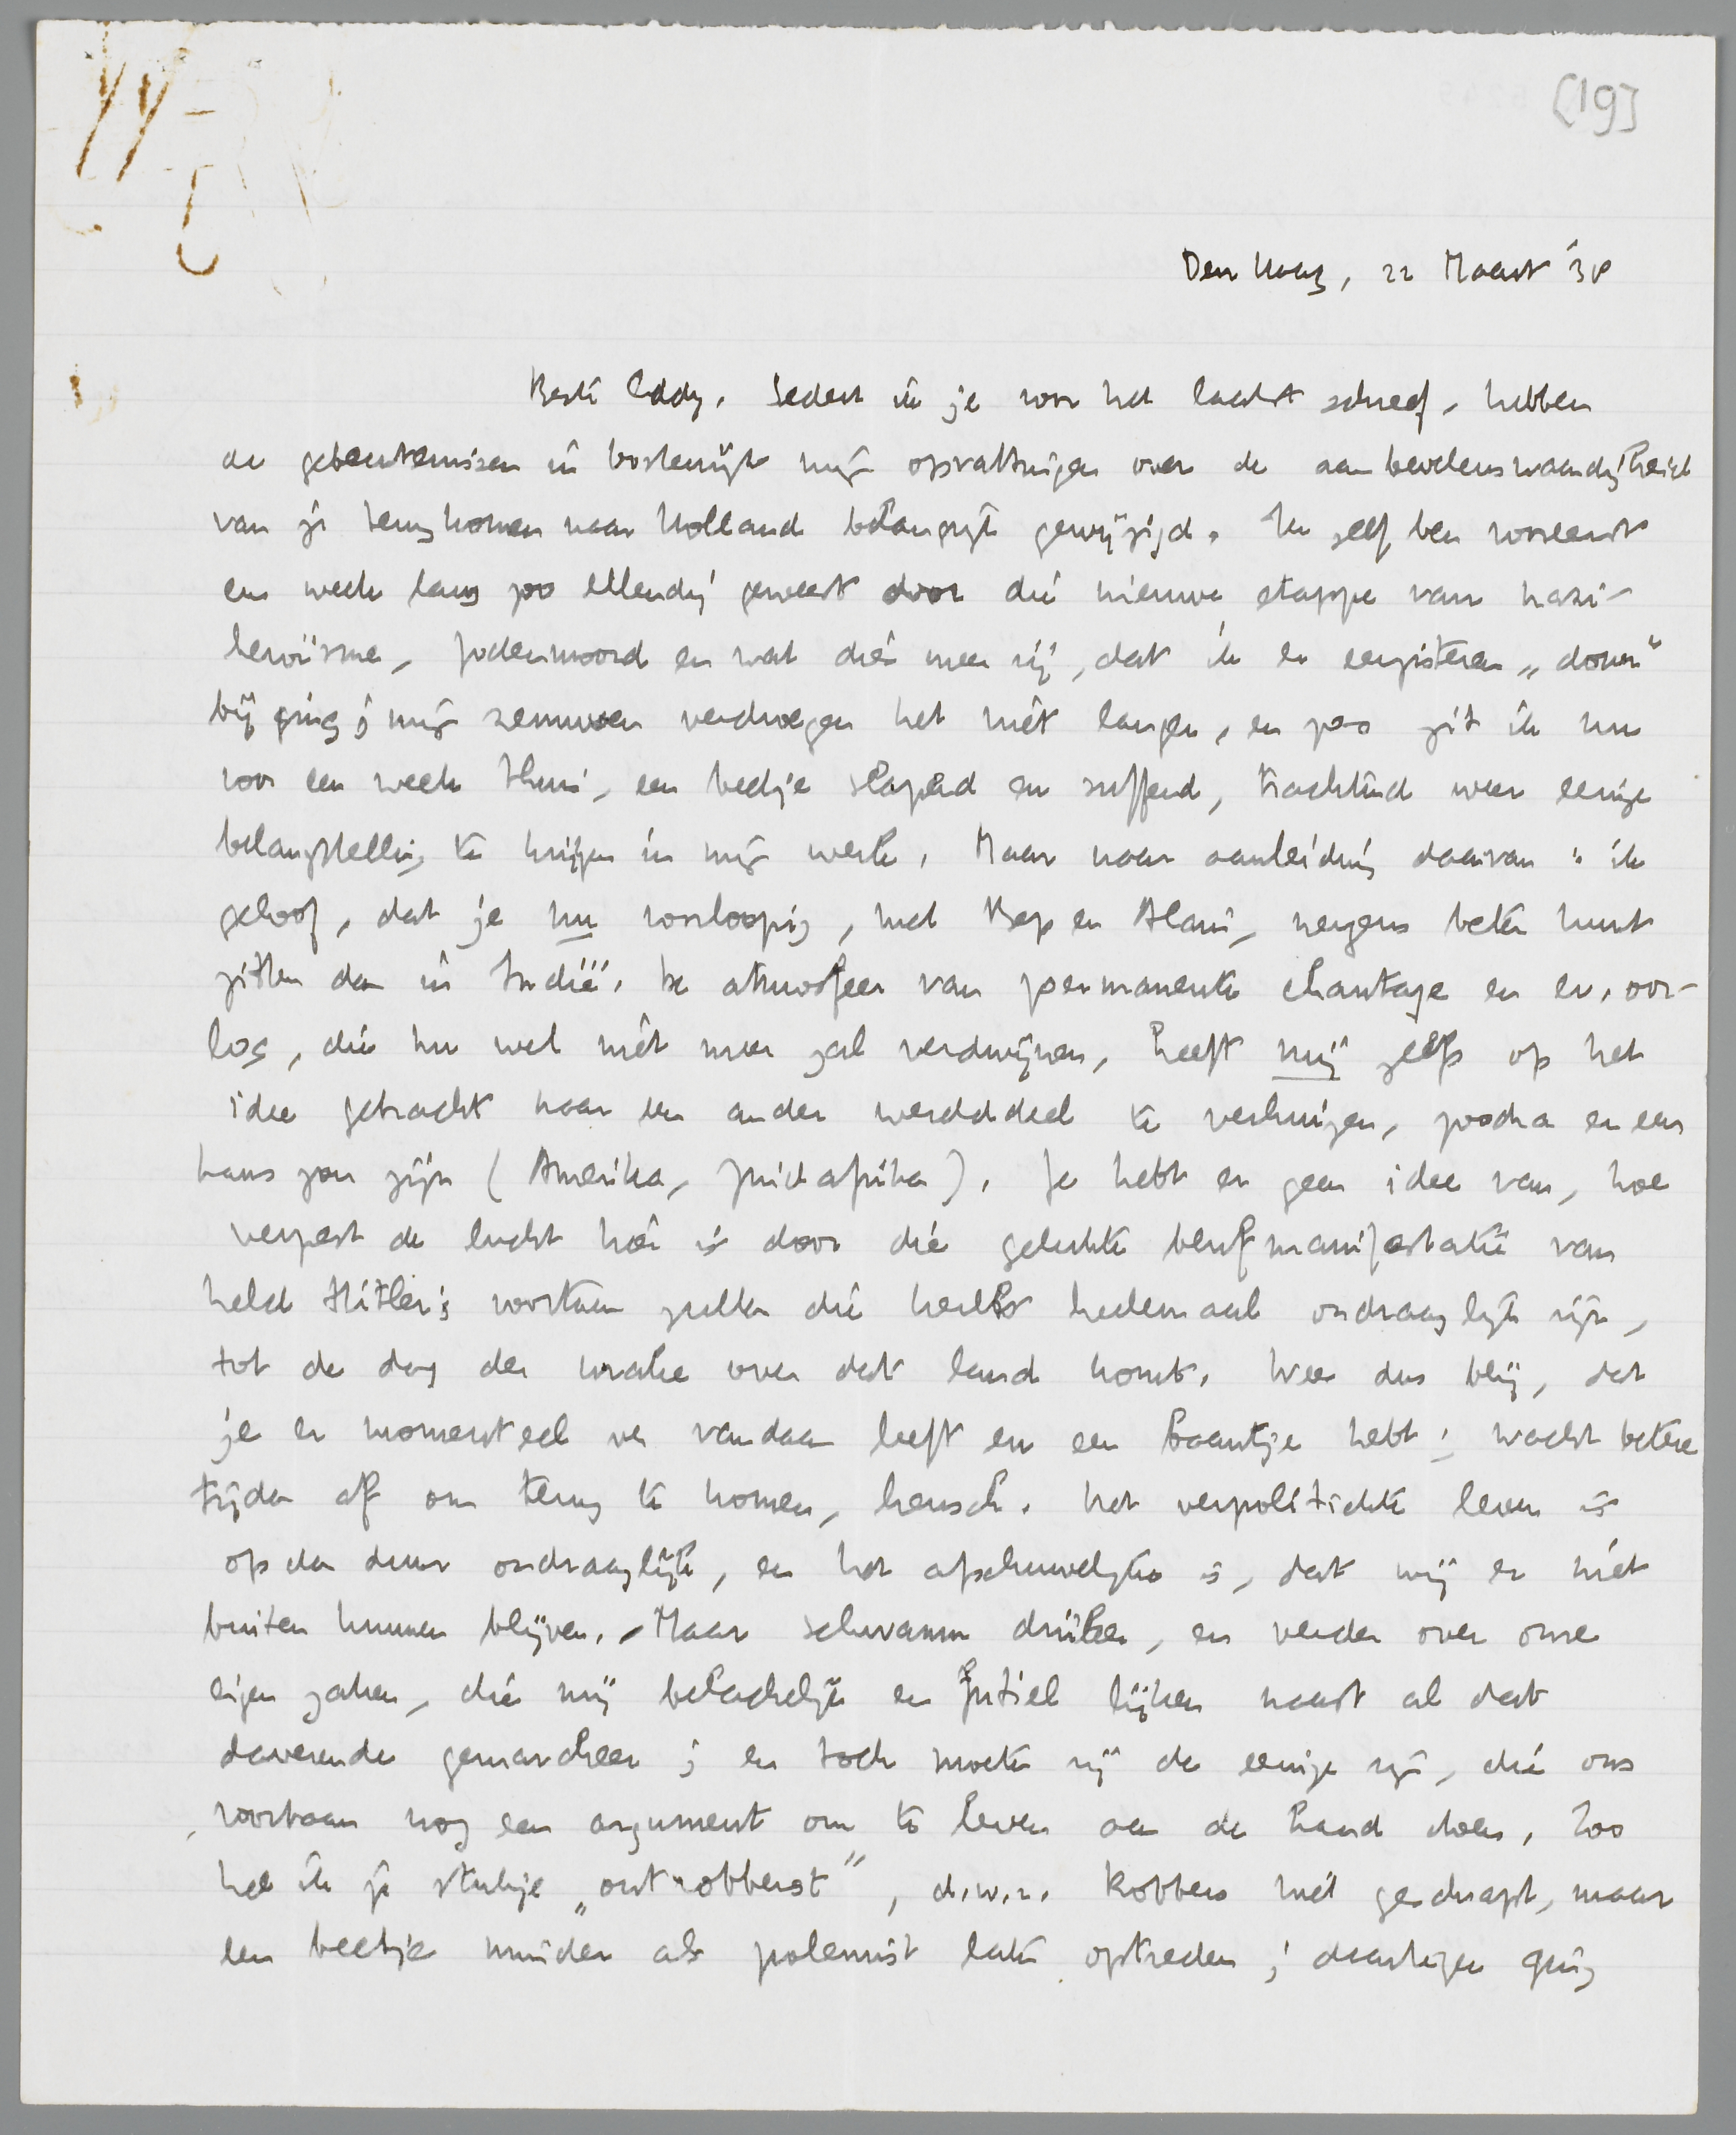 [19]
Den Haag, 22 Maart '38
Beste Eddy. Sedert ik je voor het laatst schreef, hebben
de gebeurtenissen in Oostenrijk mijn opvattingen over de aanbevelenswaardigheid
van je terugkomen naar Holland belangrijk gewijzigd. Ik zelf ben vooreerst
een week lang zoo ellendig geweest door die nieuwe etappe van nazi-
heroïsme, Jodenmoord en wat dies meer zij, dat ik er eergisteren „down"
bij ging; mijn zenuwen verdroegen het niet langer, en zoo zit ik nu
voor een week thuis, een beetje slapend en suffend, trachtend weer eenige
belangstelling te krijgen in mijn werk. Maar naar aanleiding daarvan: ik
geloof, dat je nu voorloopig, met Bep en Alain, nergens beter kunt
zitten dan in Indië. De atmosfeer van permanente chantage en ev. oor-
log, die nu wel niet meer zal verdwijnen, heeft mij zelfs op het
idee gebracht naar een ander werelddeel te verhuizen, zoodra er een
kans zou zijn (Amerika, Zuidafrika). Je hebt er geen idee van, hoe
verpest de lucht hier is door die gelukte blufmanifestatie van
held Hitler; voortaan zullen die kerels heelemaal ondraaglijk zijn,
tot de dag der wrake over dat land komt. Wees dus blij, dat
je er momenteel ver vandaan leeft en een baantje hebt; wacht betere
tijden af om terug te komen, heusch. Het verpolitiekte leven is
op den duur ondraaglijk, en het afschuwelijke is, dat wij er niet
buiten kunnen blijven. Maar schwamm drüber, en verder over onze
eigen zaken, die mij belachelijk en futiel lijken naast al dat
daverende gemarcheer; en toch moeten zij de eenige zijn, die ons
voortaan nog een argument om te leven aan de hand doen. Zoo
heb ik je stukje „ontrobberst", d.w.z. Robbers niet geschrapt, maar
een beetje minder als polemist laten optreden; daartegen ging